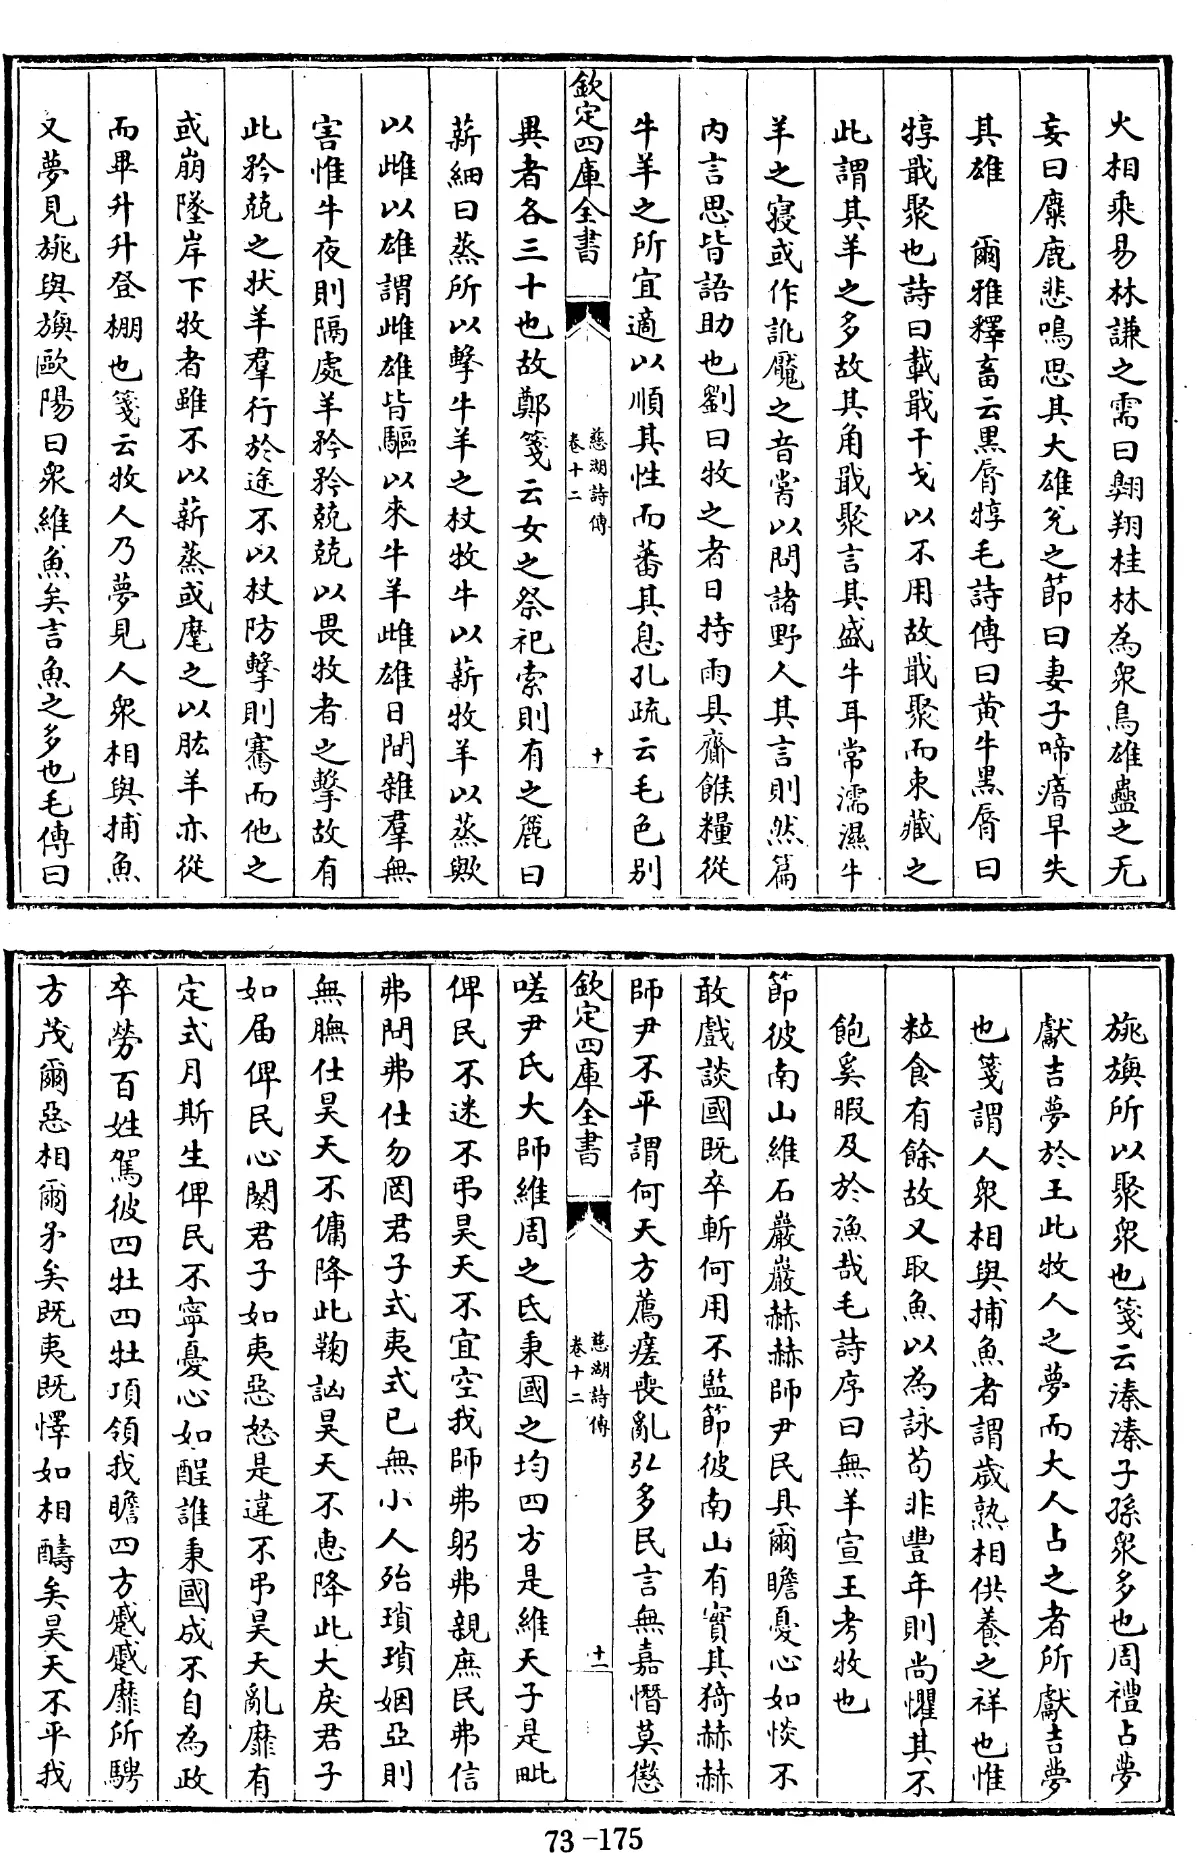 火相乘易林謙之需曰翺翔桂林為衆鳥雄蠱之无
妄曰麋鹿悲鳴思其大雄兊之節曰妻子啼瘖早失
其雄　爾雅釋畜云黑脣犉毛詩傳曰黄牛黑脣曰
犉戢聚也詩曰載戢干戈以不用故戢聚而束藏之
此謂其羊之多故其角戢聚言其盛牛耳常濡濕牛
羊之寢或作訛魘之音嘗以問諸野人其言則然篇
内言思皆語助也劉曰牧之者日持雨具齎餱糧從
牛羊之所宜適以順其性而蕃其息孔疏云毛色别
欽定四庫全書
慈湖詩傳
卷十二
十
異者各三十也故鄭箋云女之祭祀索則有之麄曰
薪細曰蒸所以擊牛羊之杖牧牛以薪牧羊以蒸歟
以雌以雄謂雌雄皆驅以來牛羊雌雄日間雜羣無
害惟牛夜則隔處羊矜矜兢兢以畏牧者之擊故有
此矜兢之状羊羣行於途不以杖防擊則騫而他之
或崩墜岸下牧者雖不以薪蒸或麾之以肱羊亦從
而畢升升登棚也箋云牧人乃夢見人衆相與捕魚
又夢見旐與旟歐陽曰衆維魚矣言魚之多也毛傳曰
旐旟所以聚衆也箋云溱溱子孫衆多也周禮占夢
獻吉夢於王此牧人之夢而大人占之者所獻吉夢
也箋謂人衆相與捕魚者謂歲熟相供養之祥也惟
粒食有餘故又取魚以為詠苟非豐年則尚懼其不
飽奚暇及於漁哉毛詩序曰無羊宣王考牧也
節彼南山維石巖巖赫赫師尹民具爾瞻憂心如惔不
敢戲談國既卒斬何用不監節彼南山有實其猗赫赫
師尹不平謂何天方薦瘥喪亂弘多民言無嘉憯莫懲
欽定四庫全書
慈湖詩傳
卷十二
十一
嗟尹氏大師維周之氐秉國之均四方是維天子是毗
俾民不迷不弔昊天不宜空我師弗躬弗親庶民弗信
弗問弗仕勿罔君子式夷式已無小人殆瑣瑣姻亞則
無膴仕昊天不傭降此鞠訩昊天不惠降此大戾君子
如届俾民心闋君子如夷惡怒是違不弔昊天亂靡有
定式月斯生俾民不寧憂心如酲誰秉國成不自為政
卒勞百姓駕彼四牡四牡項領我瞻四方蹙蹙靡所騁
方茂爾惡相爾矛矣既夷既懌如相醻矣昊天不平我
73-175